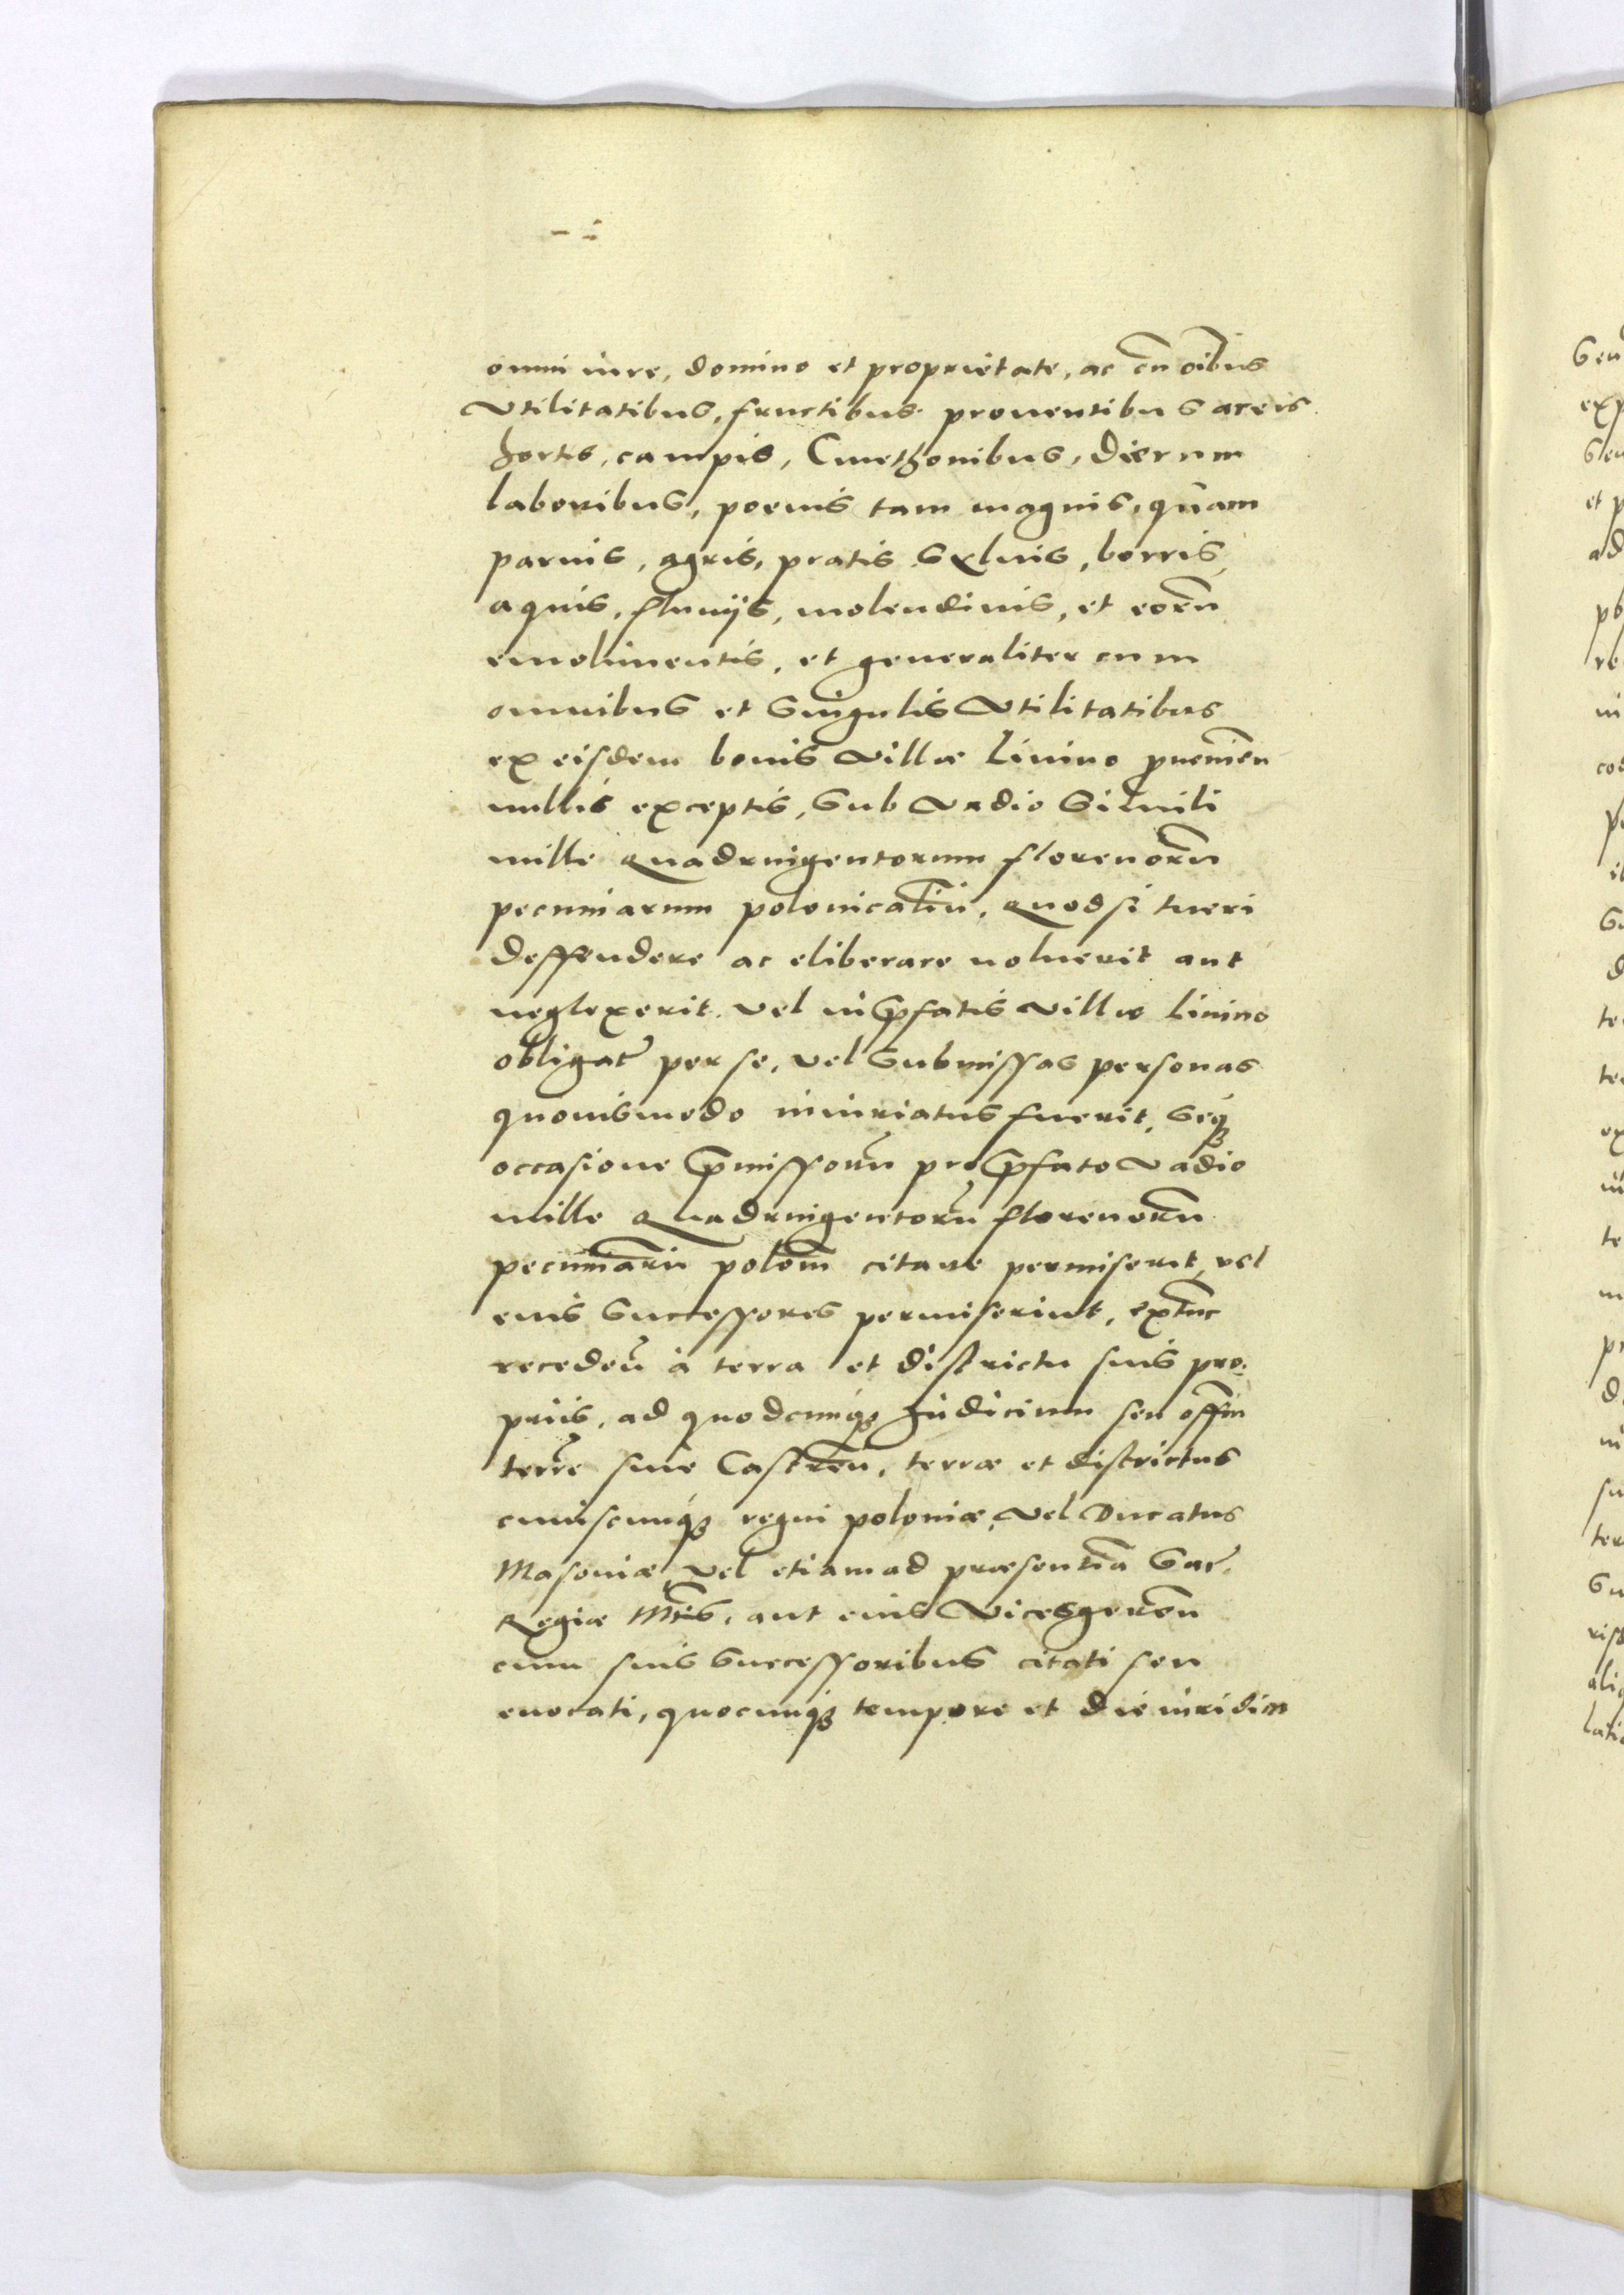 omni iure, domino et proprietate, ac cū oībus
Vtilitatibus, fructibus prouentibus areis
hortis, campis, Cmethonibus, Dierum
laboribus, poenis tam magnis, quam
paruis, agris, pratis Syluis, borris,
aquis, fluuijs, molendinis, et eorū
emolimentis, et generaliter cum
omnibus et Singulis Vtilitatibus
ex eisdem bonis Villæ Linino prouenien̄
nullis exceptis, Sub Vadio Simili
mille Quadringentorum florenorū
pecuniarum polonicaliū, Quod si tueri
deffendere ac eliberare noluerit aut
neglexerit. Vel in p̄fatis Villæ Linino
obligat̄ per se, vel Submissas personas
quouismodo iniuriatus fuerit, Seq̄
occasione p̄missorū pro p̄fato Vadio
mille Quadringentorū florenorū
pecuniarū polon̄ citare permiserit, vel
eius Successores permiserint, extūc
receden̄ à terra et districtu suis pro:
priis, ad quodcunq̄ Judicium seu offm̄
terrē siue Castren̄, terræ et districtus
cuiuscunq̄ regni poloniæ, Vel Ducatus
Masouiæ, vel etiam ad præsentiā Sac̄.
Regiæ Mtis, aut eius Vicesgeren̄
cum suis Successoribus citati seu
euocati, quocunq̄ tempore et die iuridica